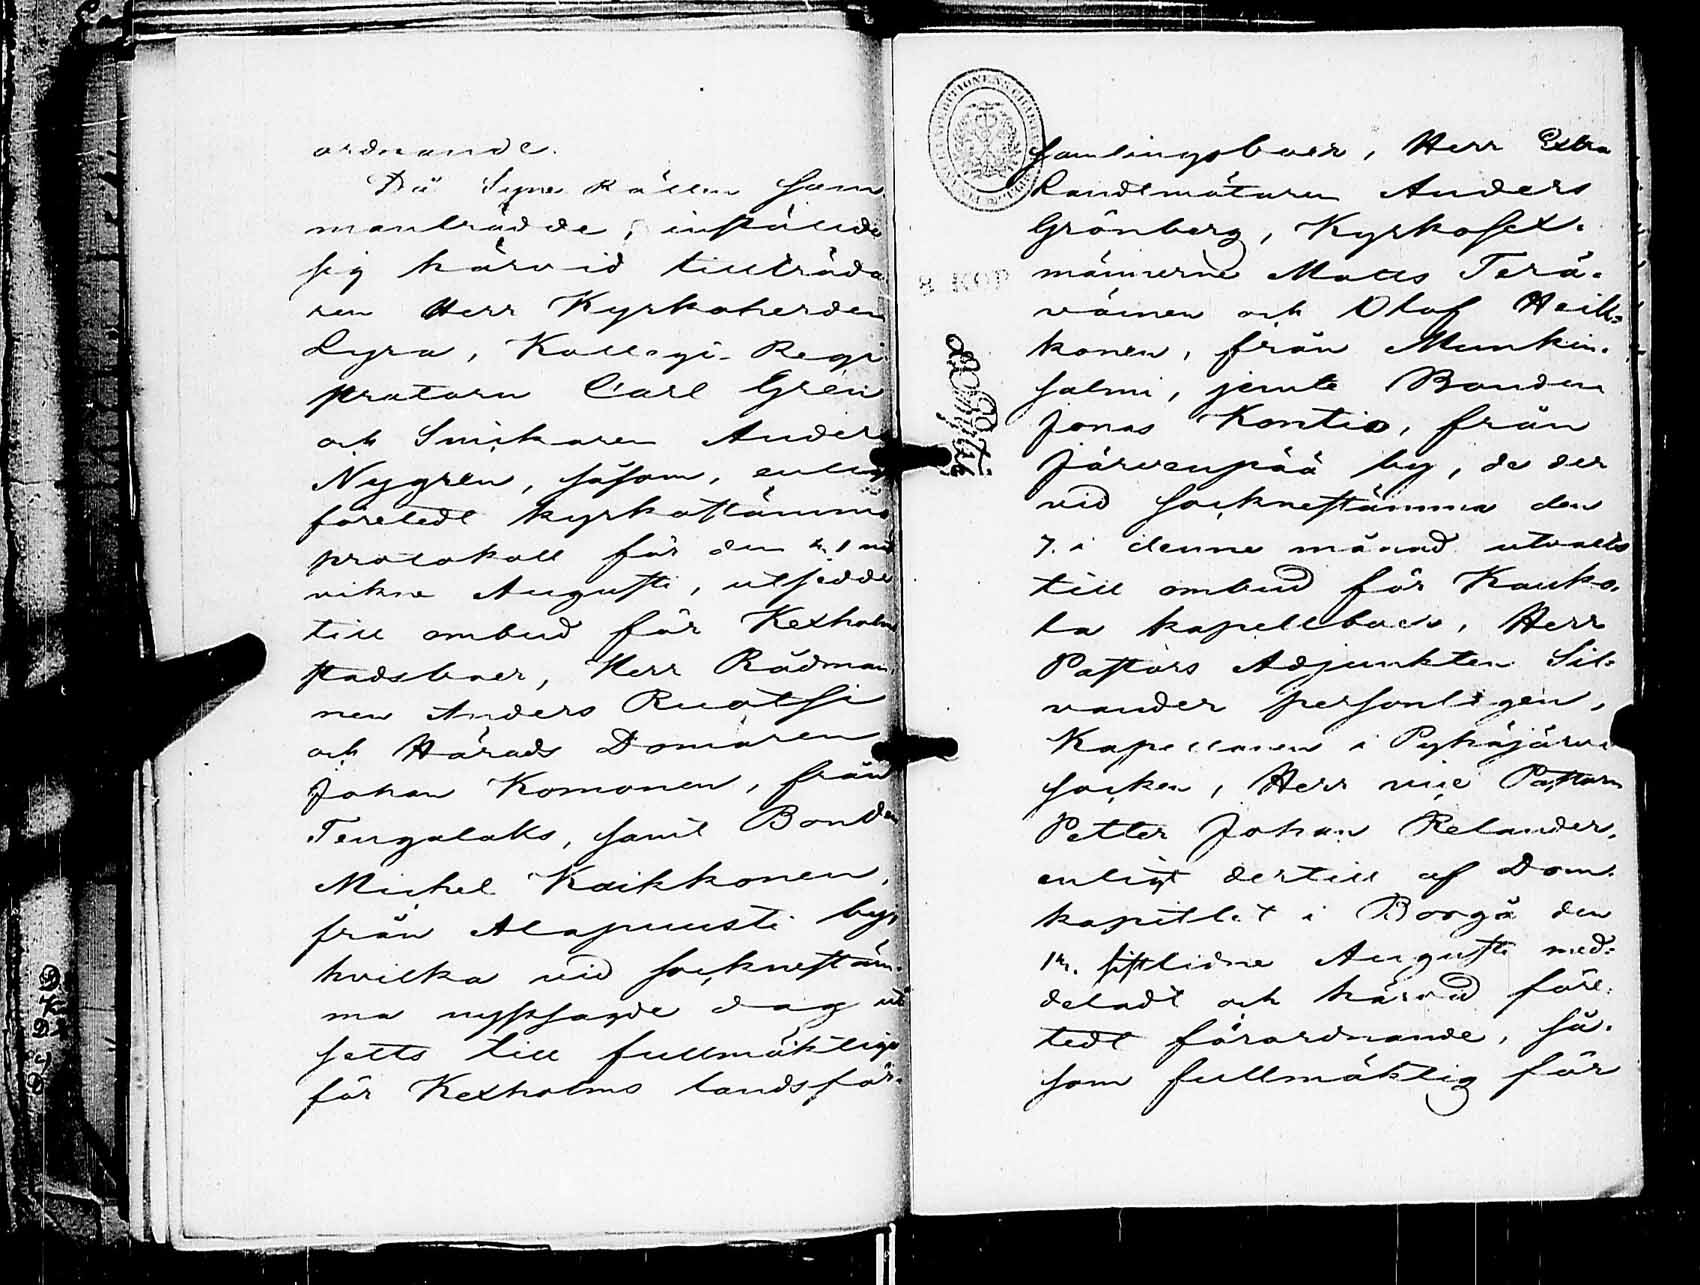 ordnande.
Då Syne Rätten sam
manträdde, inställde
sig härvid tillträda
ren Herr Kyrkoherden
Lyra, Kollegi-Regi
stratorn Carl Grén
och Snikaren Anders
Nygrén, såsom, enligt
företedt kyrkostämmo
protokoll för den 21 nä
vikne Augusti, utsedde
till ombud för Kexholms
stadsboer, Herr Rådman
nen Anders Ruotsi
och Härads Domaren
Johan Komonen, från
Tengalaks, samt Bonden
Michel Kaikkonen,
från Alapuusti by,
hvilka vid socknestäm-
ma nyssagde dag ut
setts till fullmäktige
för Kexholms landsför-
samlingsboer, Herr Extra
Landtmätaren Anders
Grönberg, Kyrkosex-
männerne Matts Terä-
väinen och Olof Heik-
konen, från Munkin-
salmi, jemte Bonden
Jonas Kontio, från
Järvenpää by, de der
vid socknestämma den
7. i denne månad utvalts
till ombud för Kauko-
la kapellboer, Herr
Pastors Adjunkten Sil-
vander personligen,
Kapellanen i Pyhäjärvi
socken, Herr vice Pastorn
Petter Johan Relander,
enligt dertill af Dom-
kapitlet i Borgå den
sistlidne Augusti med-
deladt och härvid före-
tedt förordnande, så-
som fullmäktig för
8 KOP